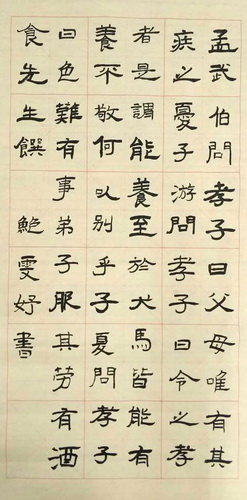 孟武伯問孝子曰父母唯有其
疾之憂子游問孝子曰今之孝
者是謂能養至於犬馬皆能有
養不敬何以別乎子夏問孝子
曰色難有事弟子服其勞有酒
食先生饌 鮑雯妤書